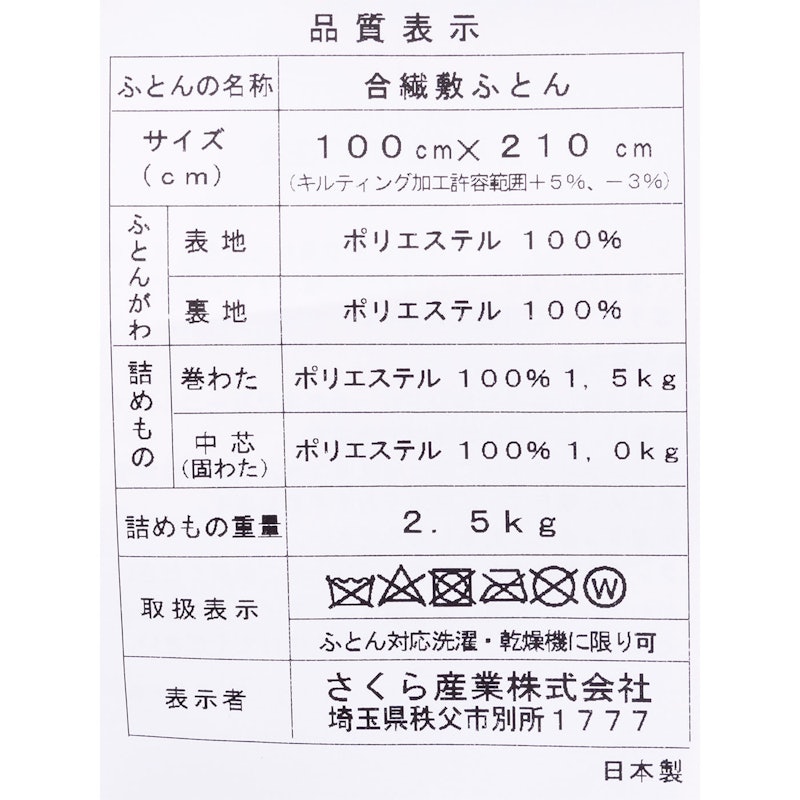 品質表示
ふとんの名称
合繊敷ふとん
サイズ
(cm)
100cm×210cm
(キルティング加工許容範囲+5%、-3%)
ふとんがわ
表地
ポリエステル 100%
裏地
ポリエステル 100%
詰めもの
巻わた
ポリエステル 100% 1,5kg
中芯
(固わた)
ポリエステル 100% 1,0kg
詰めもの重量
2.5kg
取扱表示
W
ふとん対応洗濯・乾燥機に限り可
表示者
さくら産業株式会社
埼玉県秩父市別所1777
日本製